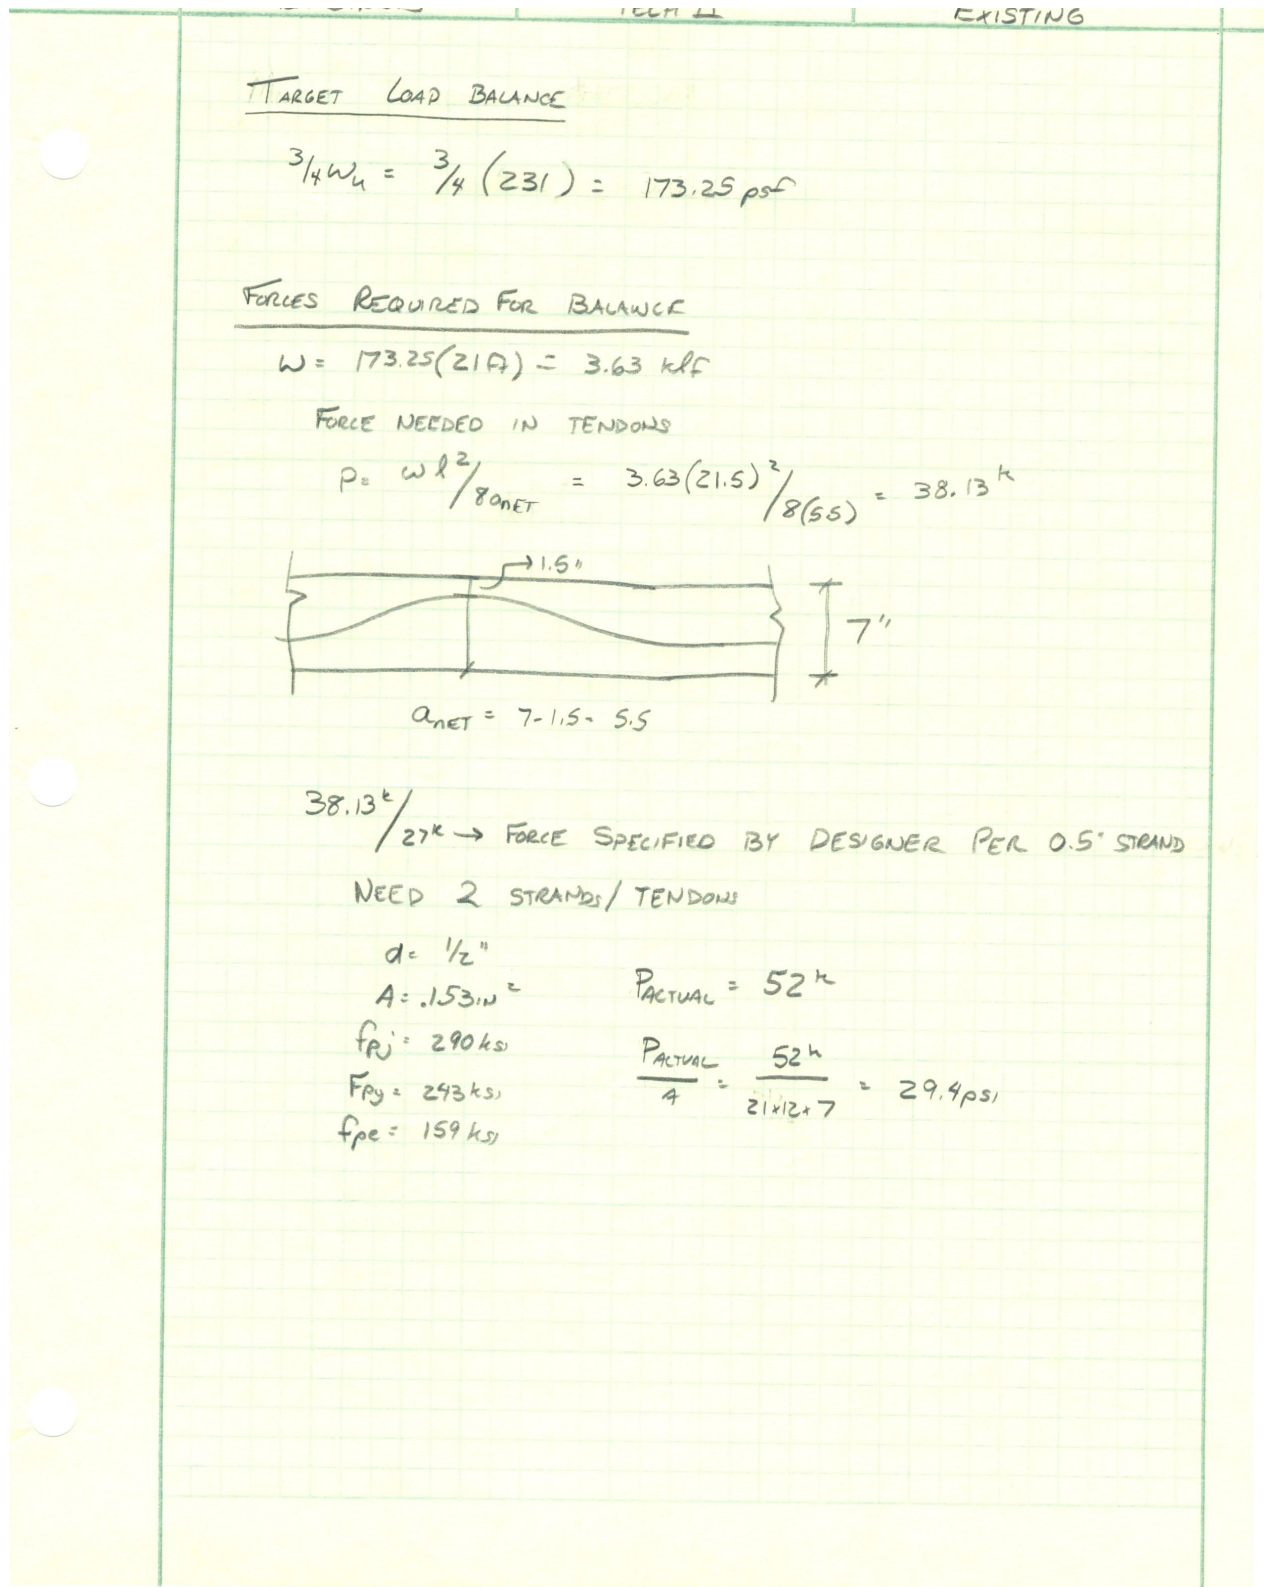 TECH II EXISTING
TARGET LOAD BALANCE
3/4 Wu = 3/4 (231) = 173.25 psf
FORCES REQUIRED FOR BALANCE
w = 173.25(21 ft) = 3.63 klf
FORCE NEEDED IN TENDONS
P = wl²/8aNET = 3.63(21.5)²/8(5.5) = 38.13 k
1.5"
7"
aNET = 7-1.5 = 5.5
38.13k/27k → FORCE SPECIFIED BY DESIGNER PER 0.5" STRAND
NEED 2 STRANDS/TENDONS
d = 1/2"
A = .153 IN² PACTUAL = 52k
fpj = 290 ksi
Fpy = 243 ksi PACTUAL/A = 52k/21x12x7 = 29.4 psi
fpe = 159 ksi